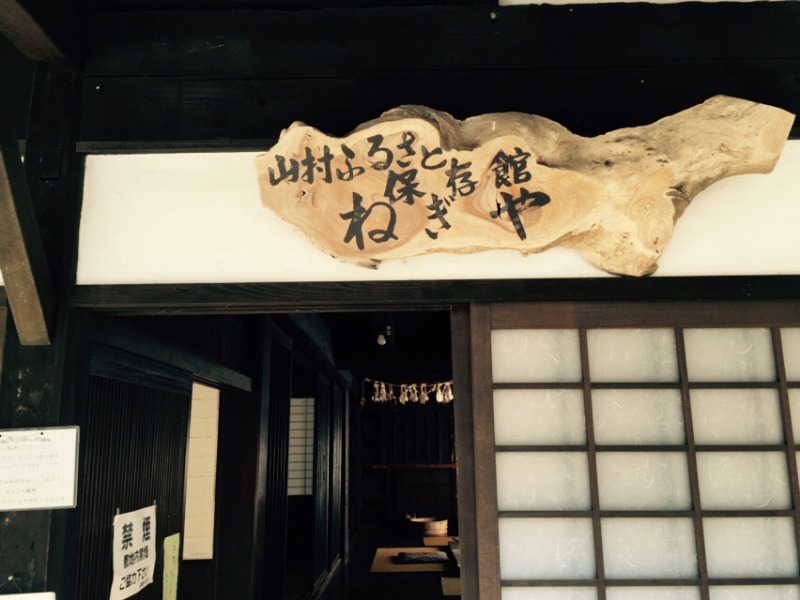 山村ふるさと
保存館
ねぎや
禁煙
敷地内禁煙
ご協力下さい